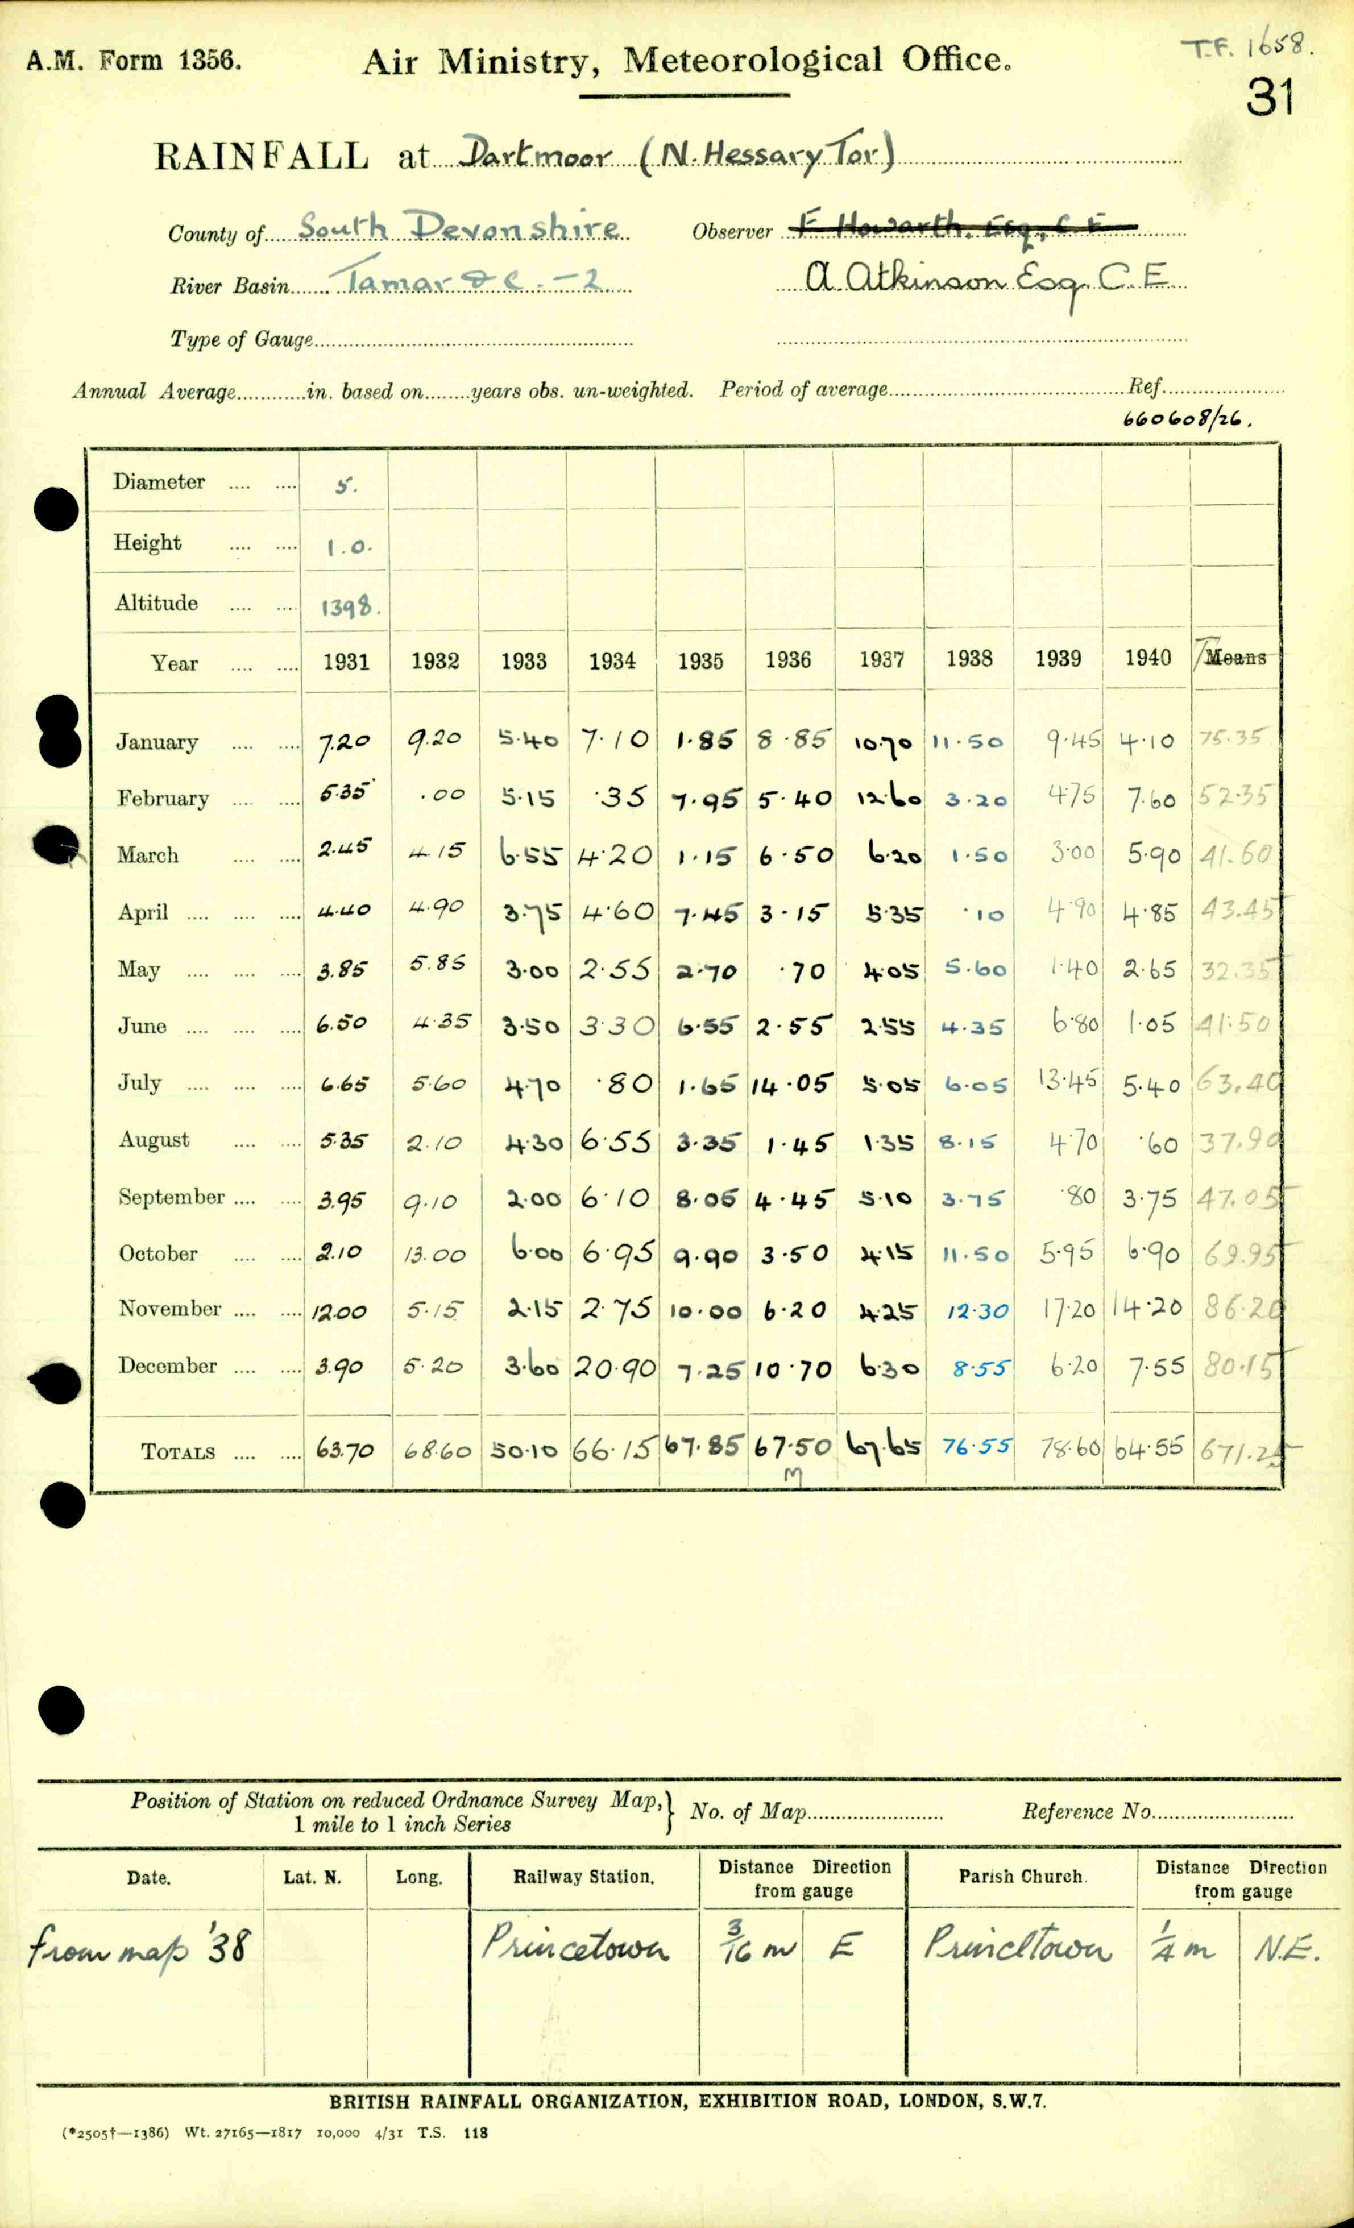 A.M. Form 1356.
Air Ministry, Meteorological Office.
T.F. 1658.
31
RAINFALL at Dartmoor (N. Hessary Tor)
County of South Devonshire Observer F Howarth, Esq., C.E
River Basin Tamar &c. -2 A Atkinson Esq. C.E
Type of Gauge
Annual Average in. based on years obs. un-weighted. Period of average Ref.
660608/26.
Diameter 5.
Height 1.0.
Altitude 1398.
Year 1931 1932 1933 1934 1935 1936 1937 1938 1939 1940 T Means
January 7.20 9.20 5.40 7.10 1.85 8.85 10.70 11.50 9.45 4.10 75.35
February 5.35 .00 5.15 .35 7.95 5.40 12.60 3.20 4.75 7.60 52.35
March 2.45 4.15 6.55 4.20 1.15 6.50 6.20 1.50 3.00 5.90 41.60
April 4.40 4.90 3.75 4.60 7.45 3.15 5.35 .10 4.90 4.85 43.45
May 3.85 5.85 3.00 2.55 2.70 .70 4.05 5.60 1.40 2.65 32.35
June 6.50 4.35 3.50 3.30 6.55 2.55 2.55 4.35 6.80 1.05 41.50
July 6.65 5.60 4.70 .80 1.65 14.05 5.05 6.05 13.45 5.40 63.40
August 5.35 2.10 4.30 6.55 3.35 1.45 1.35 8.15 4.70 .60 37.90
September 3.95 9.10 2.00 6.10 8.05 4.45 5.10 3.75 .80 3.75 47.05
October 2.10 13.00 6.00 6.95 9.90 3.50 4.15 11.50 5.95 6.90 69.95
November 12.00 5.15 2.15 2.75 10.00 6.20 4.25 12.30 17.20 14.20 86.20
December 3.90 5.20 3.60 20.90 7.25 10.70 6.30 8.55 6.20 7.55 80.15
TOTALS 63.70 68.60 50.10 66.15 67.85 67.50 67.65 76.55 78.60 64.55 671.25
M
Position of Station on reduced Ordnance Survey Map, } No. of Map Reference No.
1 mile to 1 inch Series
Date. Lat. N. Long. Railway Station. Distance Direction from gauge Parish Church. Distance Direction from gauge
from map '38 Princetown 3/16 m E Princetown 1/4 m N.E.
BRITISH RAINFALL ORGANIZATION, EXHIBITION ROAD, LONDON, S.W.7.
(*2505†—1386) Wt. 27165—1817 10,000 4/31 T.S. 118